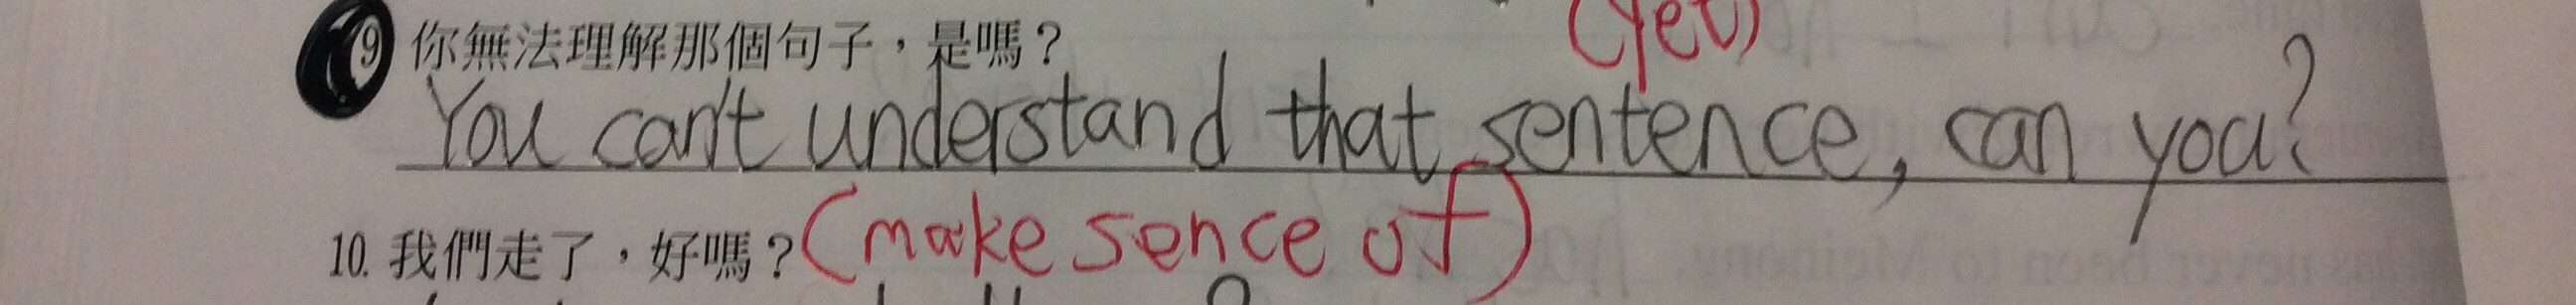 (yet)
9 你無法理解那個句子，是嗎？
You can't understand that sentence, can you?
10. 我們走了，好嗎？(make sence of)